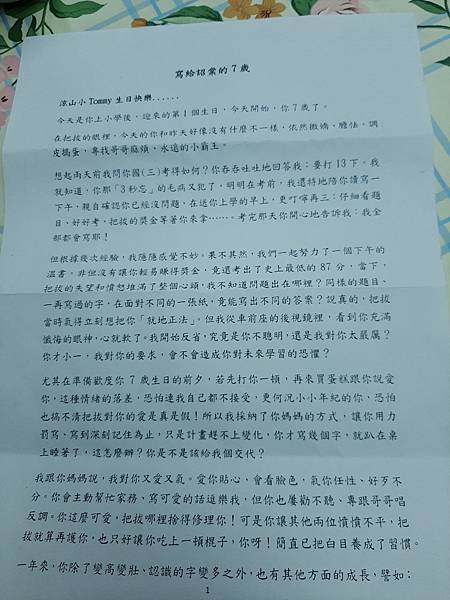 寫給詔棠的 7 歲
涼山小 Tommy 生日快樂......
今天是你上小學後，迎來的第 1 個生日，今天開始，你 7 歲了。
在把拔的眼裡，今天的你和昨天好像沒有什麼不一樣，依然撒嬌、膽怯、調
皮搗蛋，專找哥哥麻煩，永遠的小霸王。
想起兩天前我問你國(三)考得如何？你吞吞吐吐地回答我：要打 13 下。我
就知道，你那「3 秒忘」的毛病又犯了，明明在考前，我還特地陪你讀寫一
下午，親自確認你已經沒問題，在送你上學的早上，更叮嚀再三：仔細看題
目、好好考，把拔的獎金等著你來拿……。考完那天你開心地告訴我：我全
部都會寫耶！
但根據幾次經驗，我隱隱感覺不妙。果不其然，我們一起努力了一個下午的
溫書，非但沒有讓你輕易賺得獎金，竟還考出了史上最低的 87 分，當下，
把拔的失望和憤怒堆滿了整個心頭，我不知道問題出在哪裡？同樣的題目、
一再寫過的字，在面對不同的一張紙，竟能寫出不同的答案？說真的，把拔
當時氣得立刻想把你「就地正法」，但我從車前座的後視鏡裡，看到你充滿
懺悔的眼神，心就軟了。我開始反省，究竟是你不聰明，還是我對你太嚴厲？
你才小一，我對你的要求，會不會造成你對未來學習的恐懼？
尤其在準備歡度你 7 歲生日的前夕，若先打你一頓，再來買蛋糕跟你說愛
你，這種情緒的落差，恐怕連我自己都不接受，更何況小小年紀的你，恐怕
也搞不清把拔對你的愛是真是假！所以我採納了你媽媽的方式，讓你用力
罰寫、寫到深刻記住為止，只是計畫趕不上變化，你才寫幾個字，就趴在桌
上睡著了，這怎麼辦？你是不是該給我個交代？
我跟你媽媽說，我對你又愛又氣。愛你貼心，會看臉色，氣你任性、好歹不
分。你會主動幫忙家務，寫可愛的話逗樂我，但你也屢勸不聽、專跟哥哥唱
反調。你這麼可愛，把拔哪裡捨得修理你！可是你讓其他兩位憤憤不平，把
拔就算再護你，也只好讓你吃上一頓棍子，你呀！簡直已把白目養成了習慣。
一年來，你除了變高變壯、認識的字變多之外，也有其他方面的成長，譬如：
1